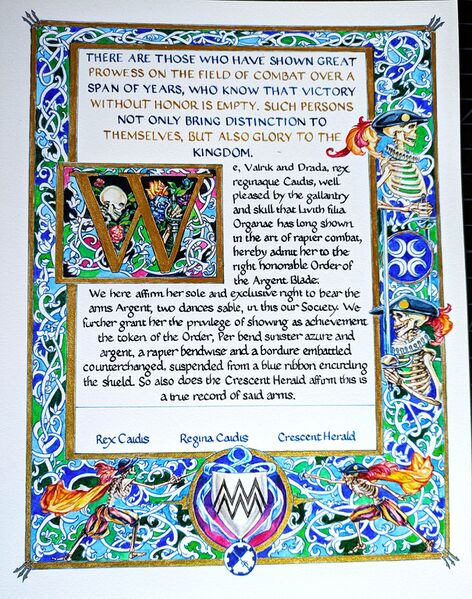 THERE ARE THOSE WHO HAVE SHOWN GREAT
PROWESS ON THE FIELD OF COMBAT OVER A
SPAN OF YEARS, WHO KNOW THAT VICTORY
WITHOUT HONOR IS EMPTY. SUCH PERSONS
NOT ONLY BRING DISTINCTION TO
THEMSELVES, BUT ALSO GLORY TO THE
KINGDOM.
We, Valrik and Drada, rex
reginaque Caidis, well
pleased by the gallantry
and skill that Livith filia
Organae has long shown
in the art of rapier combat,
hereby admit her to the
right honorable Order of
the Argent Blade.
We here affirm her sole and exclusive right to bear the
arms Argent, two dances sable, in this our Society. We
further grant her the privilege of showing as achievement
the token of the Order, Per bend sinister azure and
argent, a rapier bendwise and a bordure embattled
counterchanged, suspended from a blue ribbon encircling
the shield. So also does the Crescent Herald affirm this is
a true record of said arms.
Rex Caidis Regina Caidis Crescent Herald